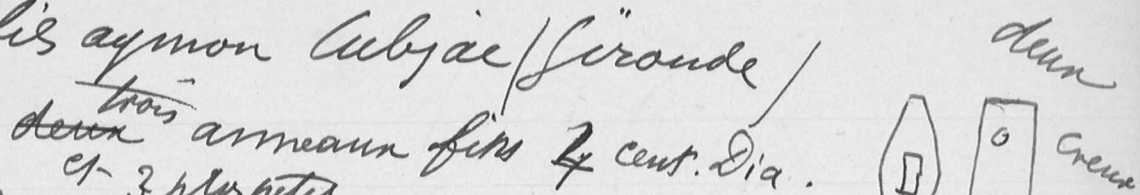 fils aymon Cubjac (Gironde)
deux
trois
deux anneaux fins 4 cent. Dia.
creux
et 3 plus petits